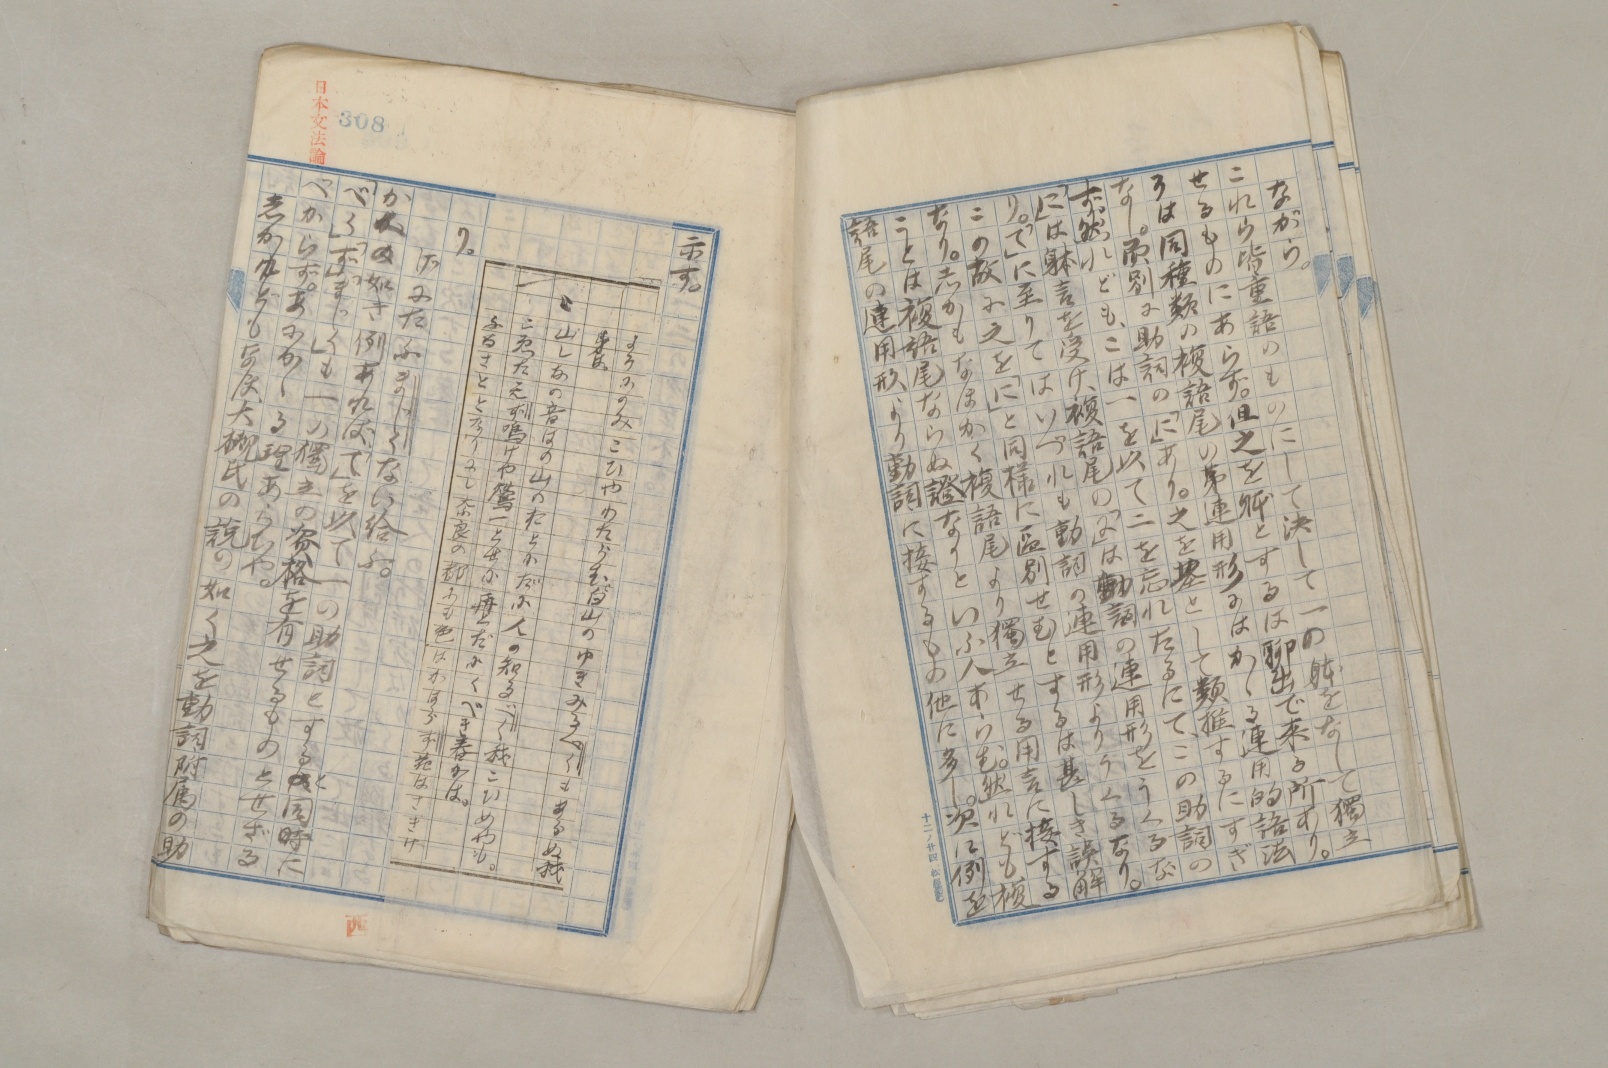 ながら。
これら皆重語のものにして決して一の躰をなして獨立
せるものにあらず。但之を躰とするは聊出で来る所あり。
そは同種類の複語尾の第連用形にはかゝる連用的語法
なし。而別に助詞の「に」あり。之を基として類推するにすぎ
ず。然れども、こは一を以て二を忘れたるにてこの助詞の
「に」は躰言を受け、複語尾の「に」は動詞の連用形をうくるな
り。「で」に至りてはいづれも動詞の連用形よりうくるなり。
この故に之を「に」と同様に區別せむとするは甚しき誤解
なり。しかもなほかく複語尾より獨立せる用言に接する
ことは複語尾ならぬ證なりといふ人あらむ。然れども複
語尾の連用形より動詞に接するもの他に多し。次に例を
示す。
よそにのみこひやわたらむ白山のゆきみるべくもあらぬ我
身は
山しなの音はの山のおとにだに人の知るべく我こひめやも。
こゑたえず鳴けや鶯一とせに再だにくべき春かは。
ふるさととなりにし奈良の都にも色はかはらず花はさきけ
り。
次にたふまじくない給ふ。
かくの如き例あれば、「で」を以て一の助詞とすると同時に
「べく」「ず」「まじく」も一の獨立の資格を有せるものとせざる
べからず。あにかゝる理あらむや。
しかれどもなほ大槻氏の説の如く之を動詞附属の助
日本文法論
308